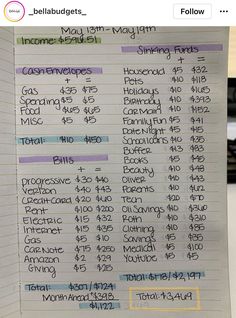 _bellabudgets_
Follow
May 13th - May 19th
Income: $596.51
Cash Envelopes
+ =
Gas $35 $75
Spending $5 $5
Food $65 $65
MISC $5 $5
Total: $110 $150
Bills
+ =
progressive $30 $40
Verizon $40 $43
Credit card $20 $60
Rent $100 $200
Electric $15 $32
Internet $15 $35
Gas $5 $10
Car Note $75 $250
Amazon $2 $29
Giving $5 $25
Total: $307 / $724
Month Ahead $398
$1,122
Sinking Funds
+ =
Household $5 $32
Pets $10 $118
Holidays $10 $165
Birthday $10 $393
Car Maint $10 $152
Family Fun $5 $41
Date Night $5 $45
School loans $10 $35
Buffer $3 $83
Books $5 $45
Beauty $10 $48
Oliver $10 $43
Parents $10 $62
Tech $20 $70
Oli Savings $10 $360
Roth $10 $310
Clothing $10 $85
Savings $5 $55
Medical $5 $100
Youtube $5 $5
Total: $178 / $2,197
Total: $3,469